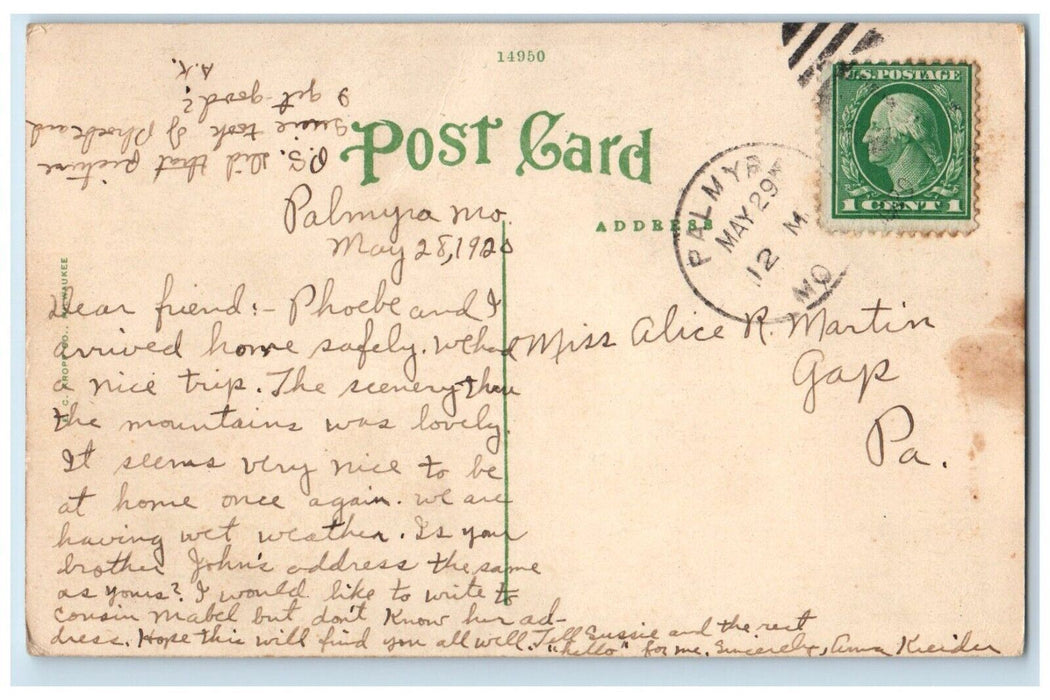 14950
Post Card
ADDRESS
U.S. POSTAGE
1 CENT 1
PALMYRA
MAY 29
12 M.
MO
E. C. KROPP CO., MILWAUKEE
Palmyra Mo.
May 28, 1920
Dear friend:- Phoebe and I
arrived home safely. We had
a nice trip. The scenery thru
the mountains was lovely.
It seems very nice to be
at home once again. We are
having wet weather. Is your
brother John's address the same
as yours? I would like to write to
cousin Mabel but don't know her ad-
dress. Hope this will find you all well. Tell Sussie and the rest
"hello" for me. Sincerely, Anna Kreider
P.S. Did that picture
Sussie took of Phoebe and
I get good?
A.K.
Miss Alice R. Martin
Gap
Pa.